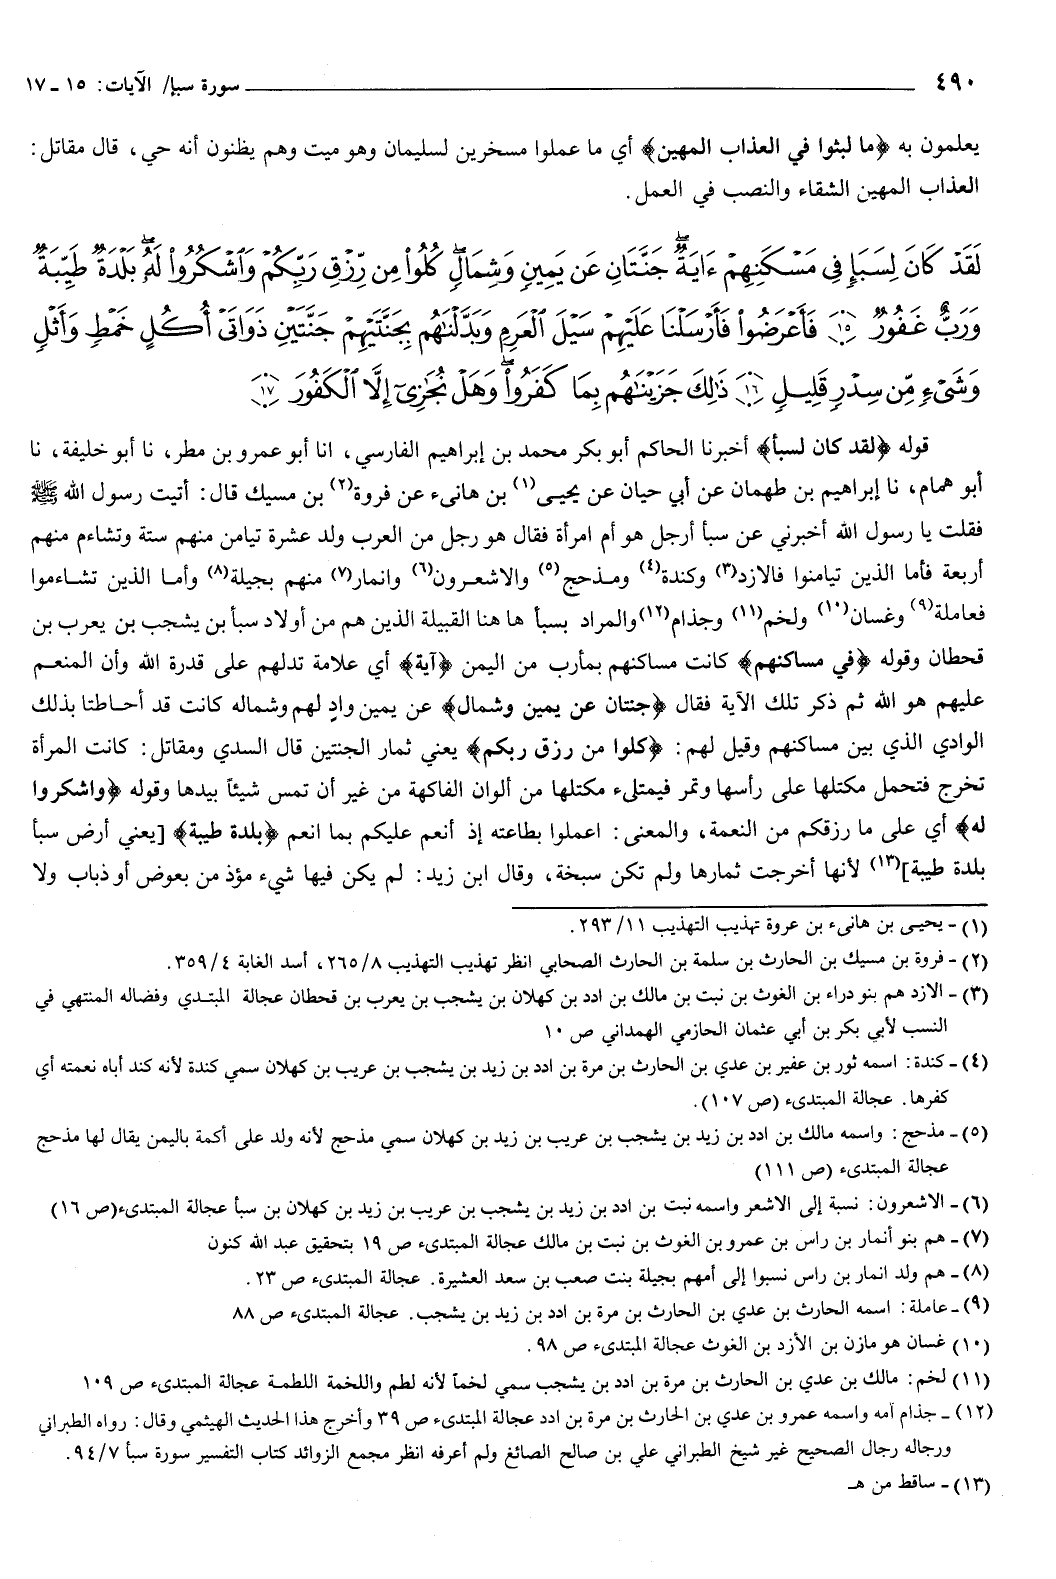 ٤٩٠ سورة سبإ/ الآيات: ١٥ ـ ١٧
يعلمون به ﴿ما لبثوا في العذاب المهين﴾ أي ما عملوا مسخرين لسليمان وهو ميت وهم يظنون أنه حي، قال مقاتل:
العذاب المهين الشقاء والنصب في العمل.
لَقَدْ كَانَ لِسَبَإٍ فِي مَسْكَنِهِمْ ءَايَةٌ ۖ جَنَّتَانِ عَن يَمِينٍ وَشِمَالٍ ۖ كُلُوا۟ مِن رِّزْقِ رَبِّكُمْ وَٱشْكُرُوا۟ لَهُۥ ۚ بَلْدَةٌ طَيِّبَةٌ
وَرَبٌّ غَفُورٌ ﴿١٥﴾ فَأَعْرَضُوا۟ فَأَرْسَلْنَا عَلَيْهِمْ سَيْلَ ٱلْعَرِمِ وَبَدَّلْنَٰهُم بِجَنَّتَيْهِمْ جَنَّتَيْنِ ذَوَاتَىْ أُكُلٍ خَمْطٍ وَأَثْلٍ
وَشَىْءٍ مِّن سِدْرٍ قَلِيلٍ ﴿١٦﴾ ذَٰلِكَ جَزَيْنَٰهُم بِمَا كَفَرُوا۟ ۖ وَهَلْ نُجَٰزِىٓ إِلَّا ٱلْكَفُورَ ﴿١٧﴾
قوله ﴿لقد كان لسبأ﴾ أخبرنا الحاكم أبو بكر محمد بن إبراهيم الفارسي، انا أبو عمرو بن مطر، نا أبو خليفة، نا
أبو همام، نا إبراهيم بن طهمان عن أبي حيان عن يحيى(١) بن هانىء عن فروة(٢) بن مسيك قال: أتيت رسول الله ﷺ
فقلت يا رسول الله أخبرني عن سبأ أرجل هو أم امرأة فقال هو رجل من العرب ولد عشرة تيامن منهم ستة وتشاءم منهم
أربعة فأما الذين تيامنوا فالازد(٣) وكندة(٤) ومذحج(٥) والاشعرون(٦) وانمار(٧) منهم بجيلة(٨) وأما الذين تشاءموا
فعاملة(٩) وغسان(١٠) ولخم(١١) وجذام(١٢) والمراد بسبأ ها هنا القبيلة الذين هم من أولاد سبأ بن يشجب بن يعرب بن
قحطان وقوله ﴿في مساكنهم﴾ كانت مساكنهم بمأرب من اليمن ﴿آية﴾ أي علامة تدلهم على قدرة الله وأن المنعم
عليهم هو الله ثم ذكر تلك الآية فقال ﴿جنتان عن يمين وشمال﴾ عن يمين وادٍ لهم وشماله كانت قد أحاطتا بذلك
الوادي الذي بين مساكنهم وقيل لهم: ﴿كلوا من رزق ربكم﴾ يعني ثمار الجنتين قال السدي ومقاتل: كانت المرأة
تخرج فتحمل مكتلها على رأسها وتمر فيمتلىء مكتلها من ألوان الفاكهة من غير أن تمس شيئاً بيدها وقوله ﴿واشكروا
له﴾ أي على ما رزقكم من النعمة، والمعنى: اعملوا بطاعته إذ أنعم عليكم بما انعم ﴿بلدة طيبة﴾ [يعني أرض سبأ
بلدة طيبة](١٣) لأنها أخرجت ثمارها ولم تكن سبخة، وقال ابن زيد: لم يكن فيها شيء مؤذ من بعوض أو ذباب ولا
(١) ـ يحيى بن هانىء بن عروة تهذيب التهذيب ٢٩٣/١١.
(٢) ـ فروة بن مسيك بن الحارث بن سلمة بن الحارث الصحابي انظر تهذيب التهذيب ٢٦٥/٨، أسد الغابة ٣٥٩/٤.
(٣) ـ الازد هم بنو دراء بن الغوث بن نبت بن مالك بن ادد بن كهلان بن يشجب بن يعرب بن قحطان عجالة المبتدي وفضاله المنتهي في
النسب لأبي بكر بن أبي عثمان الحازمي الهمداني ص ١٠
(٤) ـ كندة: اسمه ثور بن عفير بن عدي بن الحارث بن مرة بن ادد بن زيد بن يشجب بن عريب بن كهلان سمي كندة لأنه كند أباه نعمته أي
كفرها. عجالة المبتدىء (ص ١٠٧).
(٥) ـ مذحج: واسمه مالك بن ادد بن زيد بن يشجب بن عريب بن زيد بن كهلان سمي مذحج لأنه ولد على أكمة باليمن يقال لها مذحج
عجالة المبتدىء (ص ١١١)
(٦) ـ الاشعرون: نسبة إلى الاشعر واسمه نبت بن ادد بن زيد بن يشجب بن عريب بن زيد بن كهلان بن سبأ عجالة المبتدىء(ص ١٦)
(٧) ـ هم بنو أنمار بن راس بن عمرو بن الغوث بن نبت بن مالك عجالة المبتدىء ص ١٩ بتحقيق عبد الله كنون
(٨) ـ هم ولد انمار بن راس نسبوا إلى أمهم بجيلة بنت صعب بن سعد العشيرة. عجالة المبتدىء ص ٢٣.
(٩) ـ عاملة: اسمه الحارث بن عدي بن الحارث بن مرة بن ادد بن زيد بن يشجب. عجالة المبتدىء ص ٨٨
(١٠) غسان هو مازن بن الأزد بن الغوث عجالة المبتدىء ص ٩٨.
(١١) لخم: مالك بن عدي بن الحارث بن مرة بن ادد بن يشجب سمي لخماً لأنه لطم واللخمة اللطمة عجالة المبتدىء ص ١٠٩
(١٢) ـ جذام آمه واسمه عمرو بن عدي بن الحارث بن مرة بن ادد عجالة المبتدىء ص ٣٩ وأخرج هذا الحديث الهيثمي وقال: رواه الطبراني
ورجاله رجال الصحيح غير شيخ الطبراني علي بن صالح الصائغ ولم أعرفه انظر مجمع الزوائد كتاب التفسير سورة سبأ ٩٤/٧.
(١٣) ـ ساقط من هـ